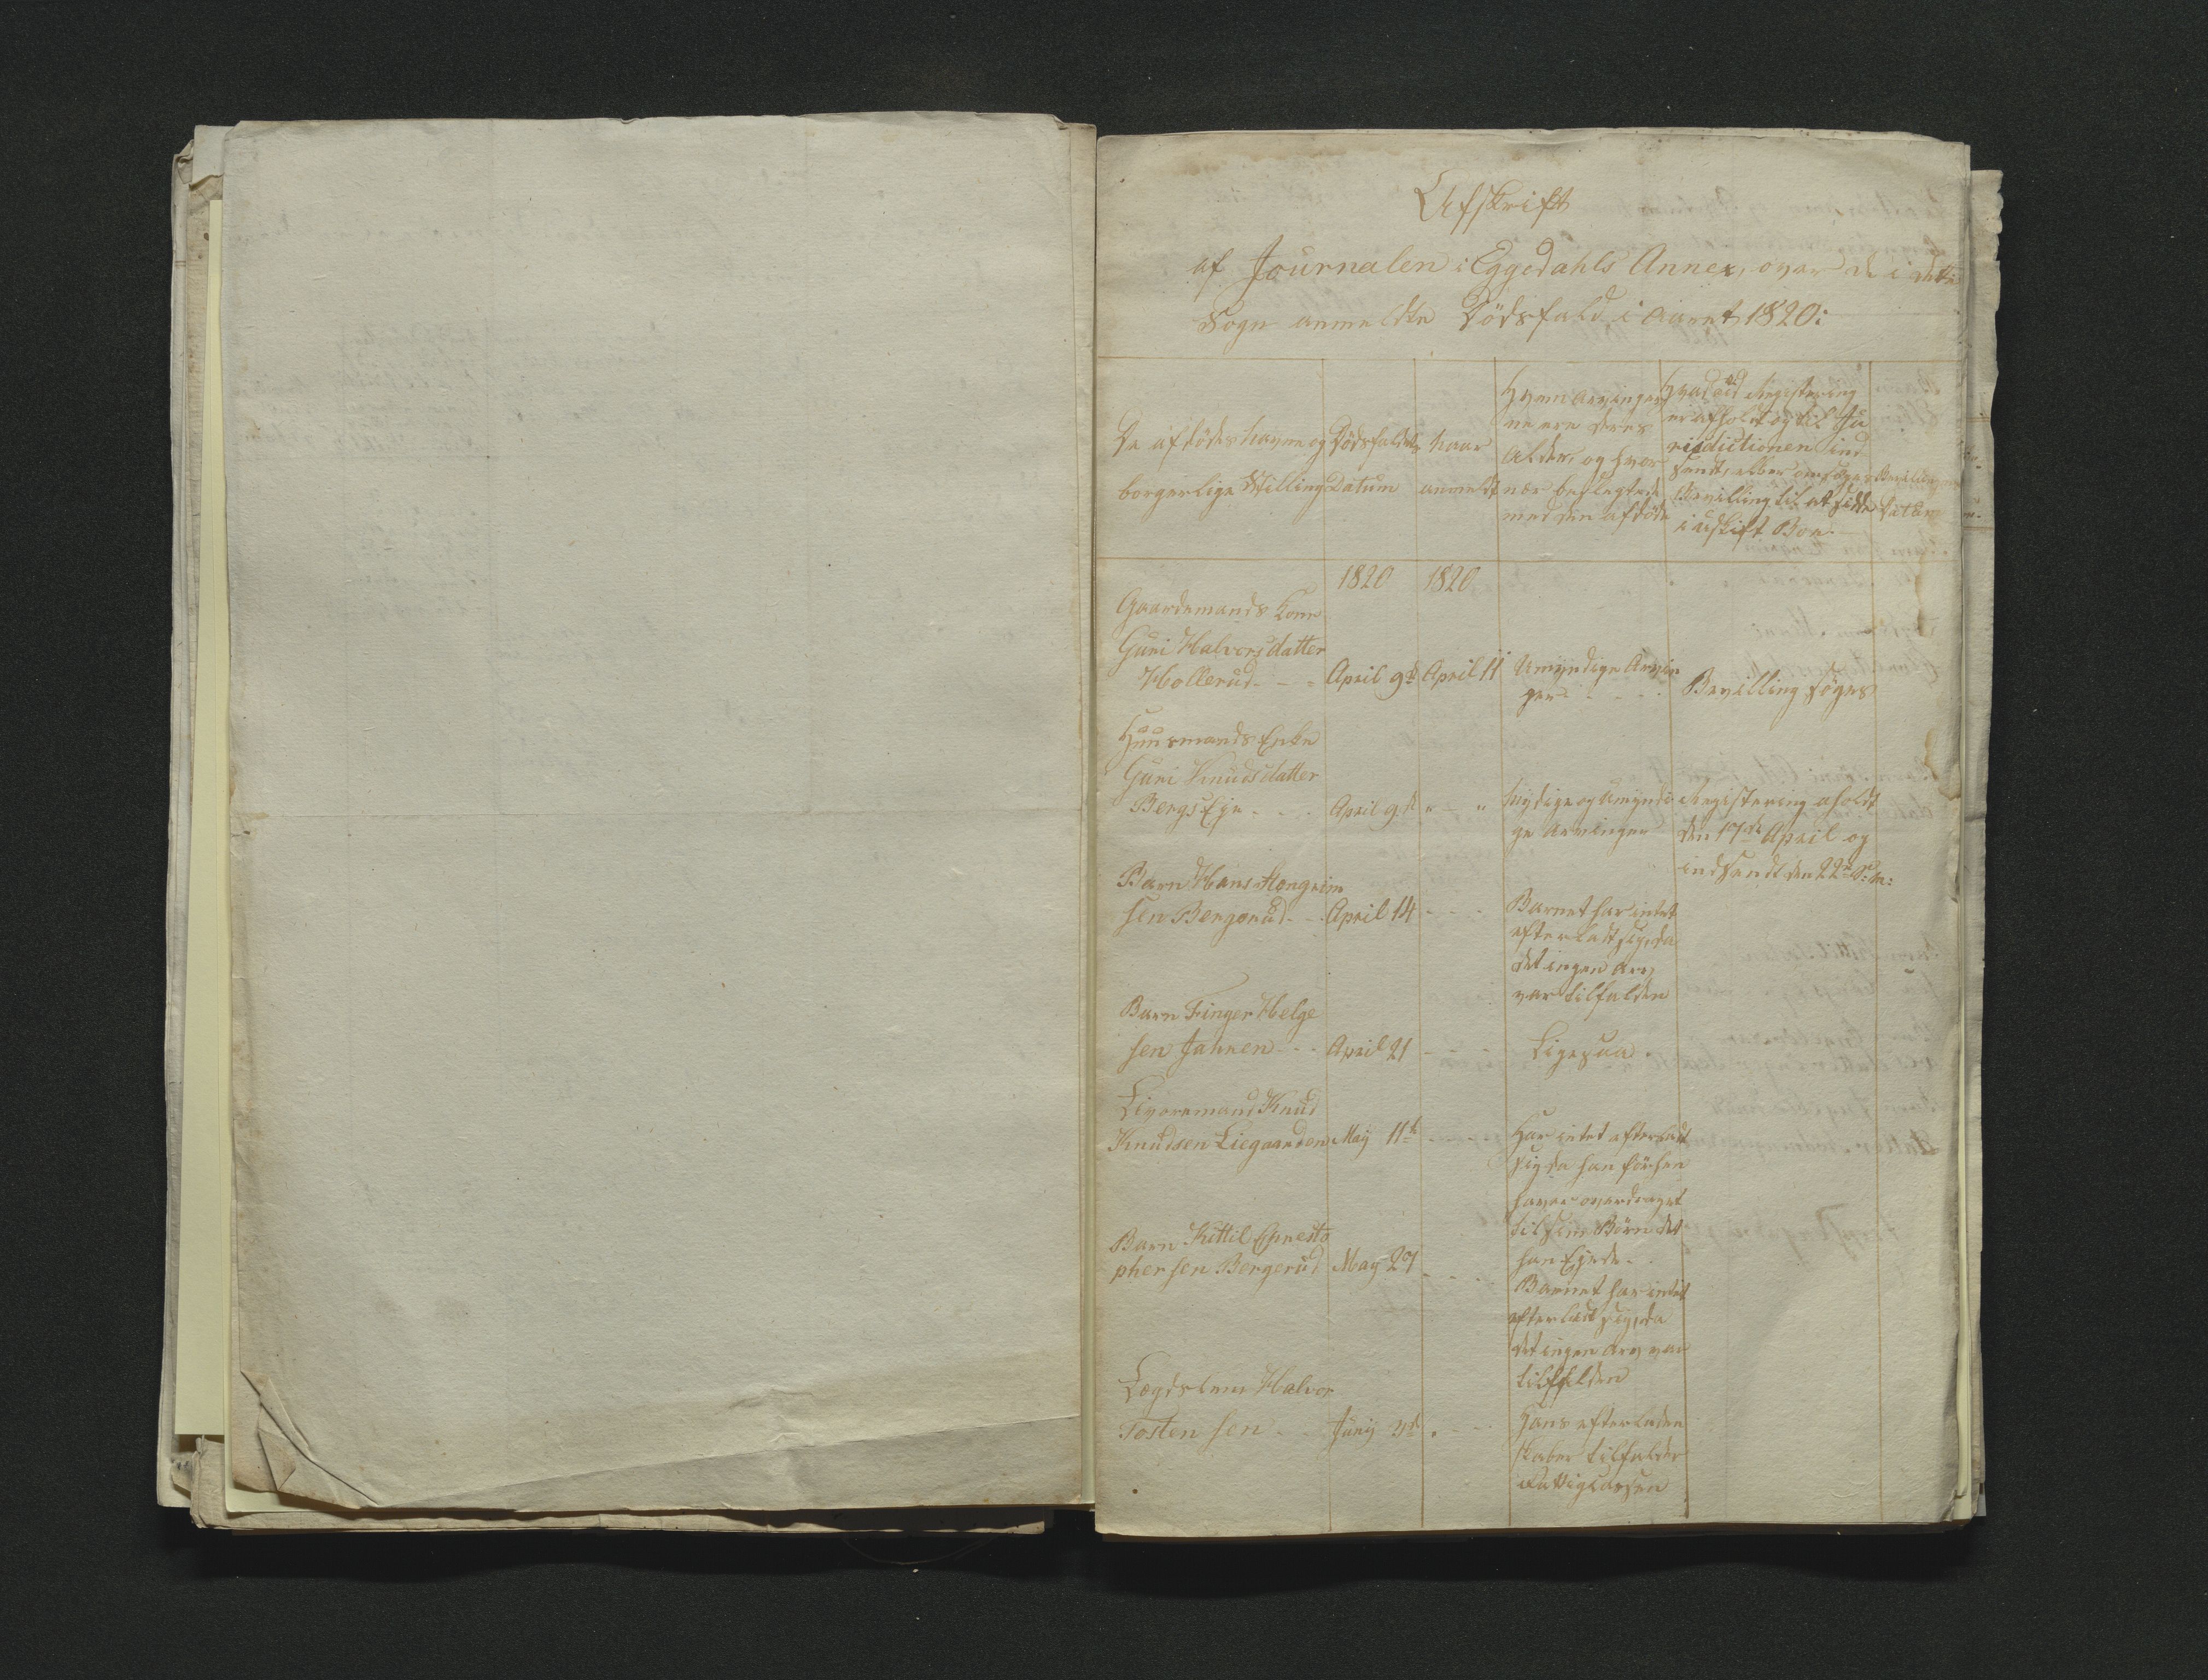 Afskrift
af Journalen i Eggedahls Annex, over de i dette
Sogn anmeldte Dödsfald i Aaret 1820:
De afdödes Navne og
borgerlige Stilling
Dödsfaldets
Datum
Naar
anmeldt
Hvem Arvinger
ne ere deres
Alder, og hvor
nær beslegtede
med den afdöde
Hvad ved Registering
er afholdt og til Ju
risdictionen ind
sendt, eller om söges
Bevilling til at sidde
i uskift Boe.
Bevillingens
Datum
1820 1820
Gaardmands Kone
Guri Halvorsdatter
Hollerud - - April 9d April 11 Umyndige Arvin
ger - - - - Bevilling söges
Huusmands Enke
Guri Knudsdatter
Bergs Eje - - - April 9d " - " Mÿdige og Umyndi
ge Arvinger
Registering aholdt
den 17de April og
indsendt den 22d d: M:
Barn Hans Hengrim
sen Bergerud - - April 14 - - - Barnet har intet
efterladt sig, da
det ingen Arv
var tilfalden
Barn Finger Helge
sen Jahren - - April 21 - - - Ligesaa
Livøremand Knud
Knudsen Liegaarden May 11te - - - Har intet efterladt
sig da han för hen
haver overdraget
til sine Børn det
han Ejede.
Barn Kittil Christo
phersen Bergerud May 27 - - - Barnet har intet
efterladt sig, da
det ingen Arv var
tilfalden
Lægdslem Halvor
Tostensen - - Juny 4d - - - Hans efterladen
skaber tilfalder
Fattigcassen